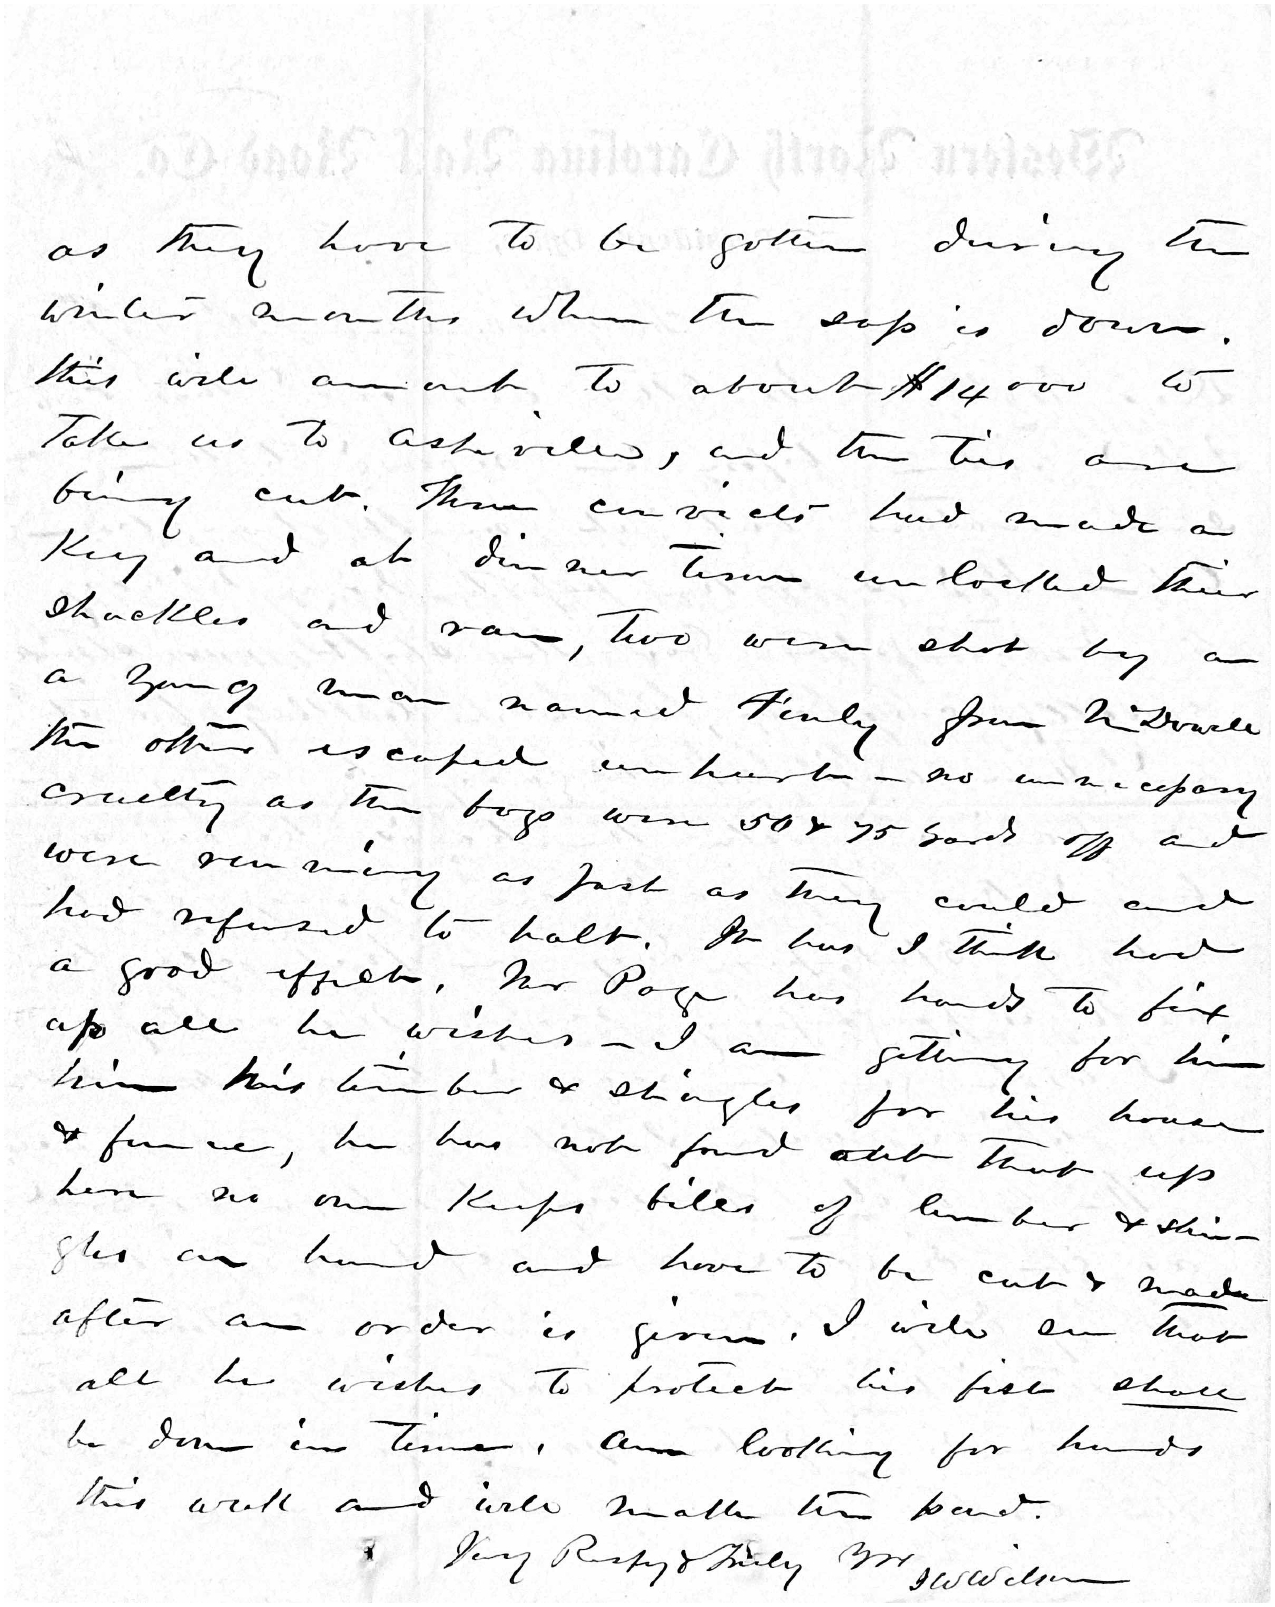 Western North Carolina Rail Road Co.
as they have to be gotten during the
winter months when the sap is down.
this will amount to about $14000 to
take us to Asheville, and the ties are
being cut. Three convicts had made a
Key and at dinner time unlocked their
shackles and ran, two were shot by a
a young man named Finly from McDowell
the other escaped unhurt – no unnecessary
cruelty as the boys were 50 & 75 yards off and
were running as fast as they could and
had refused to halt. It has I think had
a good effect. Mr Page has hands to fix
up all he wishes – I am getting for him
him his timber & shingles for his house
& fence, he has not found out that up
here no one Keeps bills of lumber & shin–
gles on hand and have to be cut & made
after an order is given. I will see that
all he wishes to protect his fish shall
be done in time. Am looking for hands
this week and will make the pond.
Very Respy & Truly Yrs
JWWilson